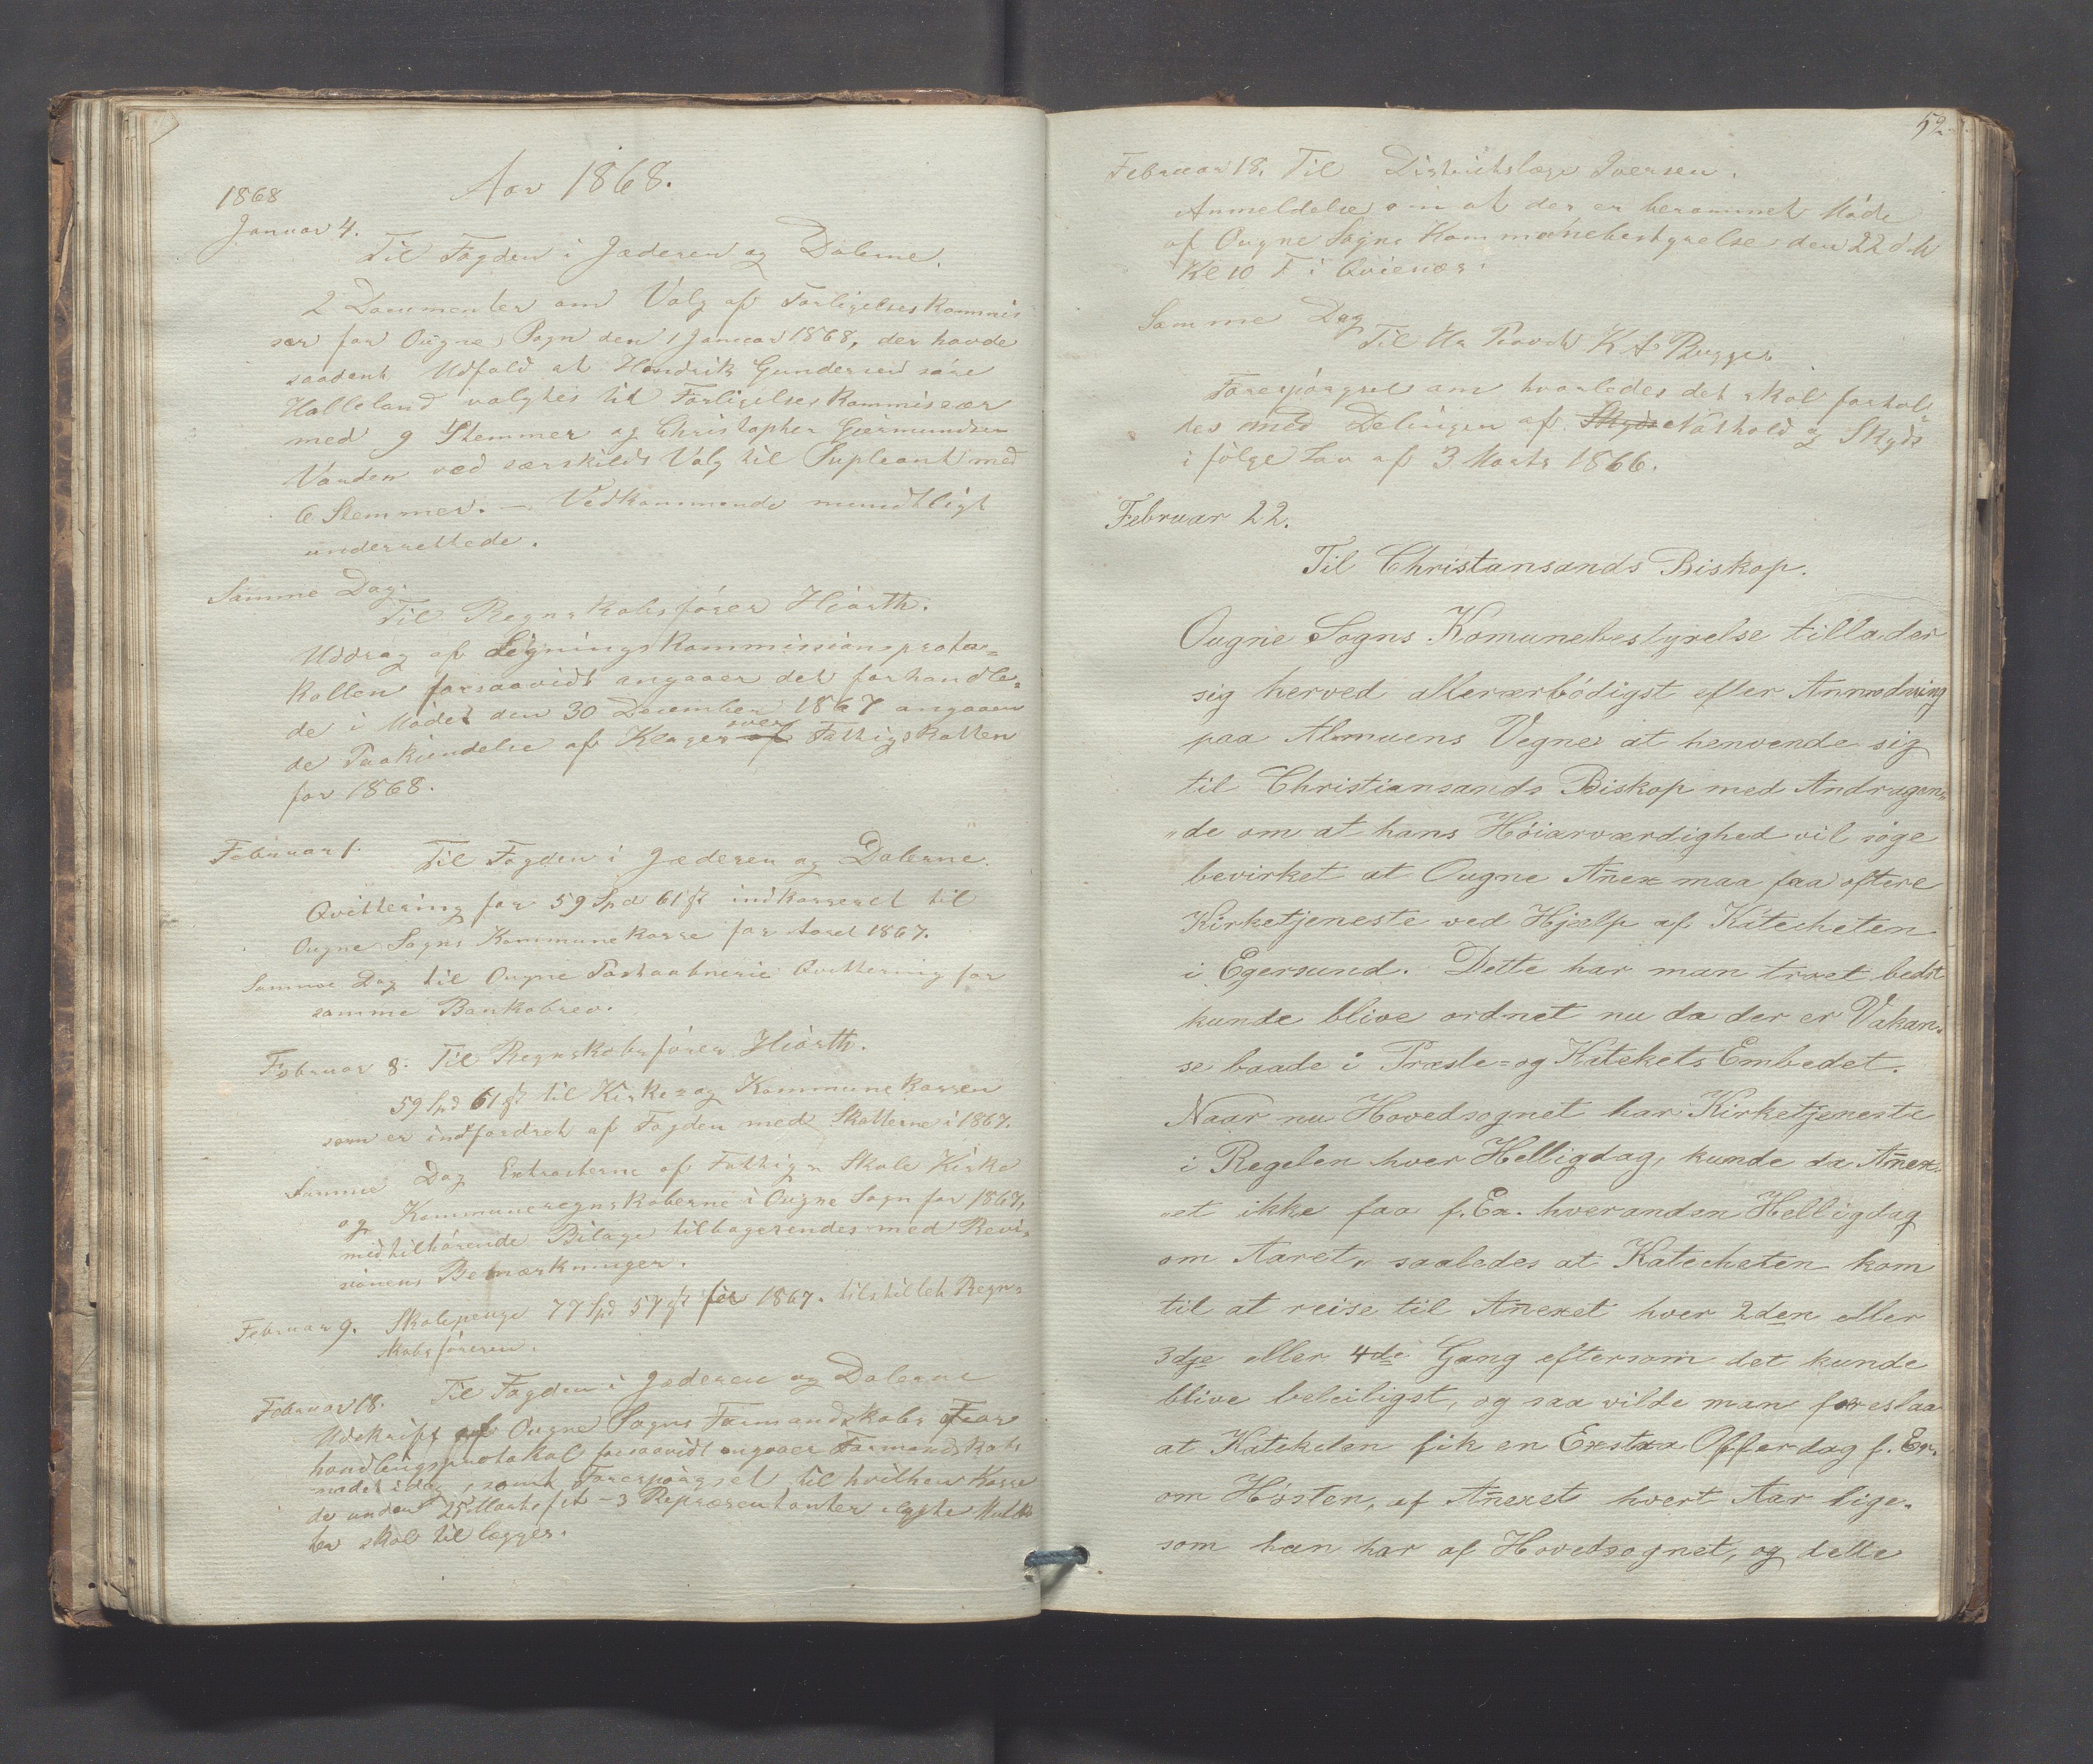 Aar 1868.
1868
Januar 4.
Til Fogden i Jæderen og Dalerne.
2 Documenter om Valg af Forligelseskommis
sær for Ougne Sogn den 1 Januar 1868, der havde
saadant Udfald at Hendrik Gundersen søre
Halleland valgtes til Forligelseskommissær
med 9 Stemmer og Christopher Giermundsen
Vanden ved særskildt Valg til Supleant med
6 Stemmer. — Vedkommende mundtligt
underrettede.
Samme Dag.
Til Regnskabsfører Hiorth.
Uddrag af Ligningskommissionsproto=
kollen forsaavidt angaaer det forhandle=
de i Mødet den 30 December 1867 angaaen
de Paakjendelse af Klager over Fattigskatten
for 1868.
Februar 1. Til Fogden i Jederen og Dalerne.
Qvittering for 59 Spd 61 ß indkasseret til
Ougne Sogns Kommunekasse for Aaret 1867.
Samme Dag til Ougne Postaabnerie Qvittering for
samme Bankobrev.
Februar 8. Til Regnskabsfører Hiorth.
59 Spd 61 ß til Kirke= og Kommunekassen
som er indfordret af Fogden med Skatterne i 1867.
Samme Dag Extracterne af Fattig= Skole Kirke
og Kommuneregnskaberne i Ougne Sogn for 1867,
medtilhørende Bilage tilbagesendes med Revi=
sionens Bemærkninger.
Februar 9. Skolepenge 77 Spd 57 ß for 1867. tilstillet Regn=
skabsføreren.
Februar 18. Til Fogden i Jæderen og Dalerne
Udskrift af Ougne Sogns Formandskabs For
handlingsprotokol forsaavidt angaaer Formandskabs
mødet idag, samt Forespørgsel til hvilken Kasse
de under 25 Marts f A - 3 Repræsentanter ilagte Mulk
ter skal tillægges.
52
Februar 18. Til Districtslæge Iversen.
Anmeldelse om at der er berammet Møde
af Ougne Sogns Kommunebestyrelse den 22 d M
Kl 10 F i Qvievær.
Samme Dag
Til Hr Provst K A Bugge
Forespørgsel om hvorledes det skal forhol=
des med Delingen af Skyds Nathold og Skyds
i følge Lov af 3 Marts 1866.
Februar 22.
Til Christansands Biskop.
Ougne Sogns Komunebestyrelse tillader
sig herved allerærbødigst efter Anmodning
paa Almuens Vegne at henvende sig
til Christiansands Biskop med Andragen=
"de om at hans Høiærværdighed vil søge
bevirket at Ougne Añex maa faa oftere
Kirketjeneste ved Hjælp af Katecheten
i Egersund. Dette har man troet bedst
kunde blive ordnet nu da der er Vakan=
se baade i Præste= og Katekets Embedet.
Naar nu Hovedsognet har Kirketjeneste
i Regelen hver Helligdag, kunde da Añex=
"et ikke faa f. Ex. hveranden Helligdag
om Aaret, saaledes at Katecheten kom
til at reise til Añexet hver 2den eller
3dje eller 4de Gang eftersom det kunde
blive beleiligst, og saa vilde man foreslaa
at Kateketen fik en Exstra Offerdag f. Ex.
om Høsten, af Añexet hvert Aar lige=
som han har af Hovedsognet, og dette